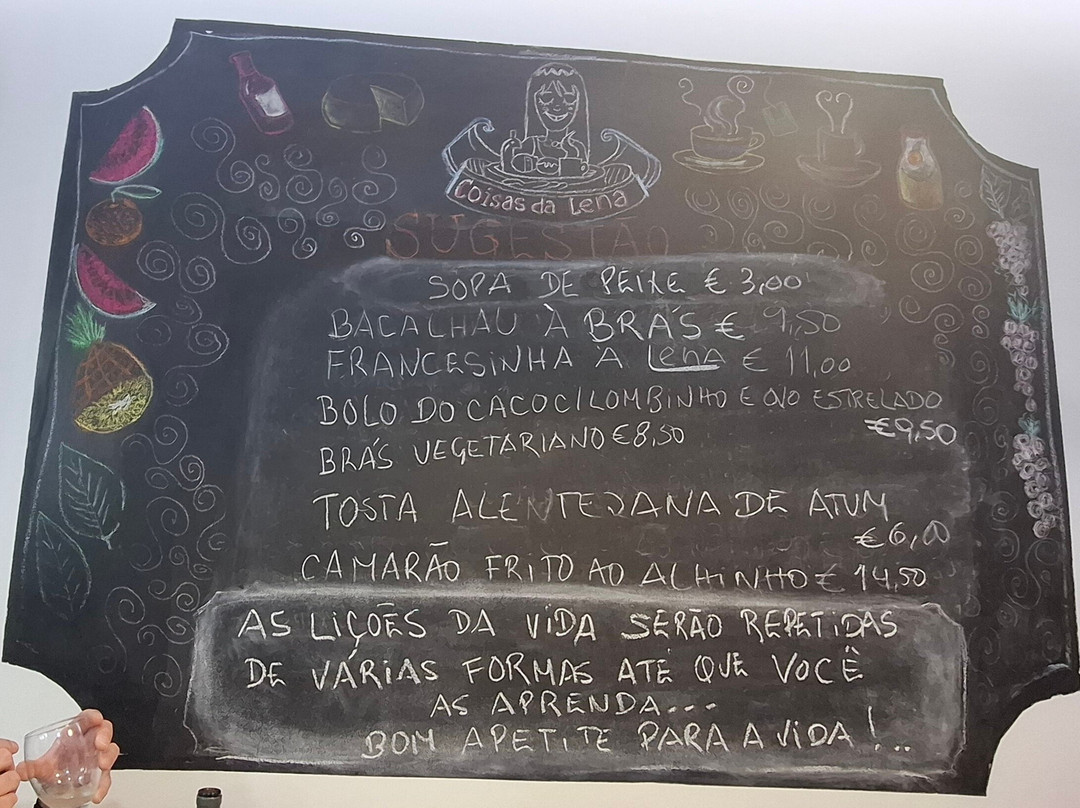 Coisas da Lena
SUGESTÃO
SOPA DE PEIXE € 3,00
BACALHAU À BRÁS € 9,50
FRANCESINHA À Lena € 11,00
BOLO DO CACO C/ LOMBINHO E OVO ESTRELADO
€9,50
BRÁS VEGETARIANO €8,50
TOSTA ALENTEJANA DE ATUM
€6,00
CAMARÃO FRITO AO ALHINHO € 14,50
AS LIÇÕES DA VIDA SERÃO REPETIDAS
DE VÁRIAS FORMAS ATÉ QUE VOCÊ
AS APRENDA...
BOM APETITE PARA A VIDA!..